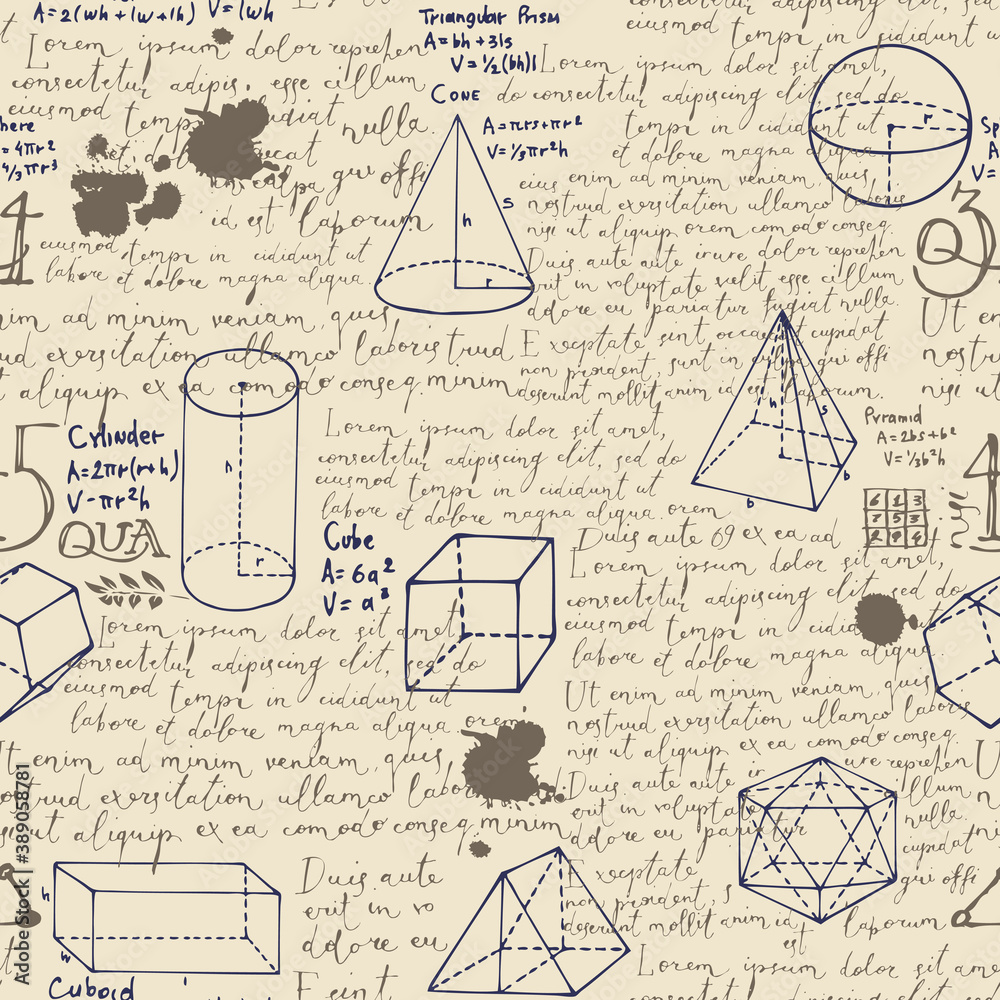 A=2(wh+lw+lh) V=lwh
Lorem ipsum dolor reprehen
consectetur adipis. esse cillum
eiusmod tempo fugiat
nulla.
et do
gui offi
id est laborum
eiusmod tempi in cididunt ut
labore et dolore magna aliqua.
here
=4πr2
4/3πr3
4
Triangular Prism
A=bh+3ls
V=½(bh)l
CONE
A=πrs+πr2
V=⅓πr2h
h
s
r
consectetur adipiscing elit, sed
eiusmod tempi in cididunt ut
Lorem ipsum dolor sit amet,
do consectetur adipiscing elit, sed do
tempi in cididunt ut
et dolore magna aliqua
eius enim ad minim veniam, quis
nostrud exersitation ullamco laboris
nisi ut aliquip orem comodo conseq.
Duis aute aute irure dolor reprehen
erit in voluptate velit esse cillum
ddore eu pariatur fugiat nulla.
Exceptate sint occaecat cupidat
non proident, sunt in culpa gui offi
deserunt mollit anim id est laborum.
r
Sp
A
V=
Q3
Ut en
nostru
nisi ut
nim ad minim veniam, quis
ud exersitation ullamco laboris trud
t aliquip ex ea comodo conseq minim
5
Cylinder
A=2πr(r+h)
V-πr2h
QUA
h
r
Lorem ipsum dolor sit amet,
consectetur adipiscing elit, sed do
eiusmod tempi in cididunt ut
labore et dolore magna aliqua. orem
Cube
A=6a2
V=a3
h
s
b
b
Pyramid
A=2bs+b2
V=⅓b2h
6 1 3
7 5 3
2 9 4
Duis aute 69 ex ea ad
Lorem ipsum dolor sit amet,
consectetur adipiscing elit, sed do
eiusmod tempi in cididunt ut
labore et dolore magna aliqua.
Ut enim ad minim veniam, quis
nostrud exersitation ullamco laboris
nisi ut aliquip ex ea comodo conseq
Duis aute aute ir ure reprehen
erit in voluptate illum
ddore eu pariatur nulla.
Exceptate cupidat
non proident, s gui offi
deserunt mollit anim id est laborum
Lorem ipsum dolor sit amet,
consectetur adipiscing elit, sed do
eiusmod tempi in cididunt ut
labore et dolore magna aliqua orem
Ut enim ad minim veniam, quis
ostrud exersitation ullamco laboris
si ut aliquip ex ea comodo conseq minim
h
w
Cuboid
Duis aute
erit in vo
ddore eu
E sint
Lorem ipsum dolor sit amet,
consectetur adipiscing elit, sed
Adobe Stock | #389058781